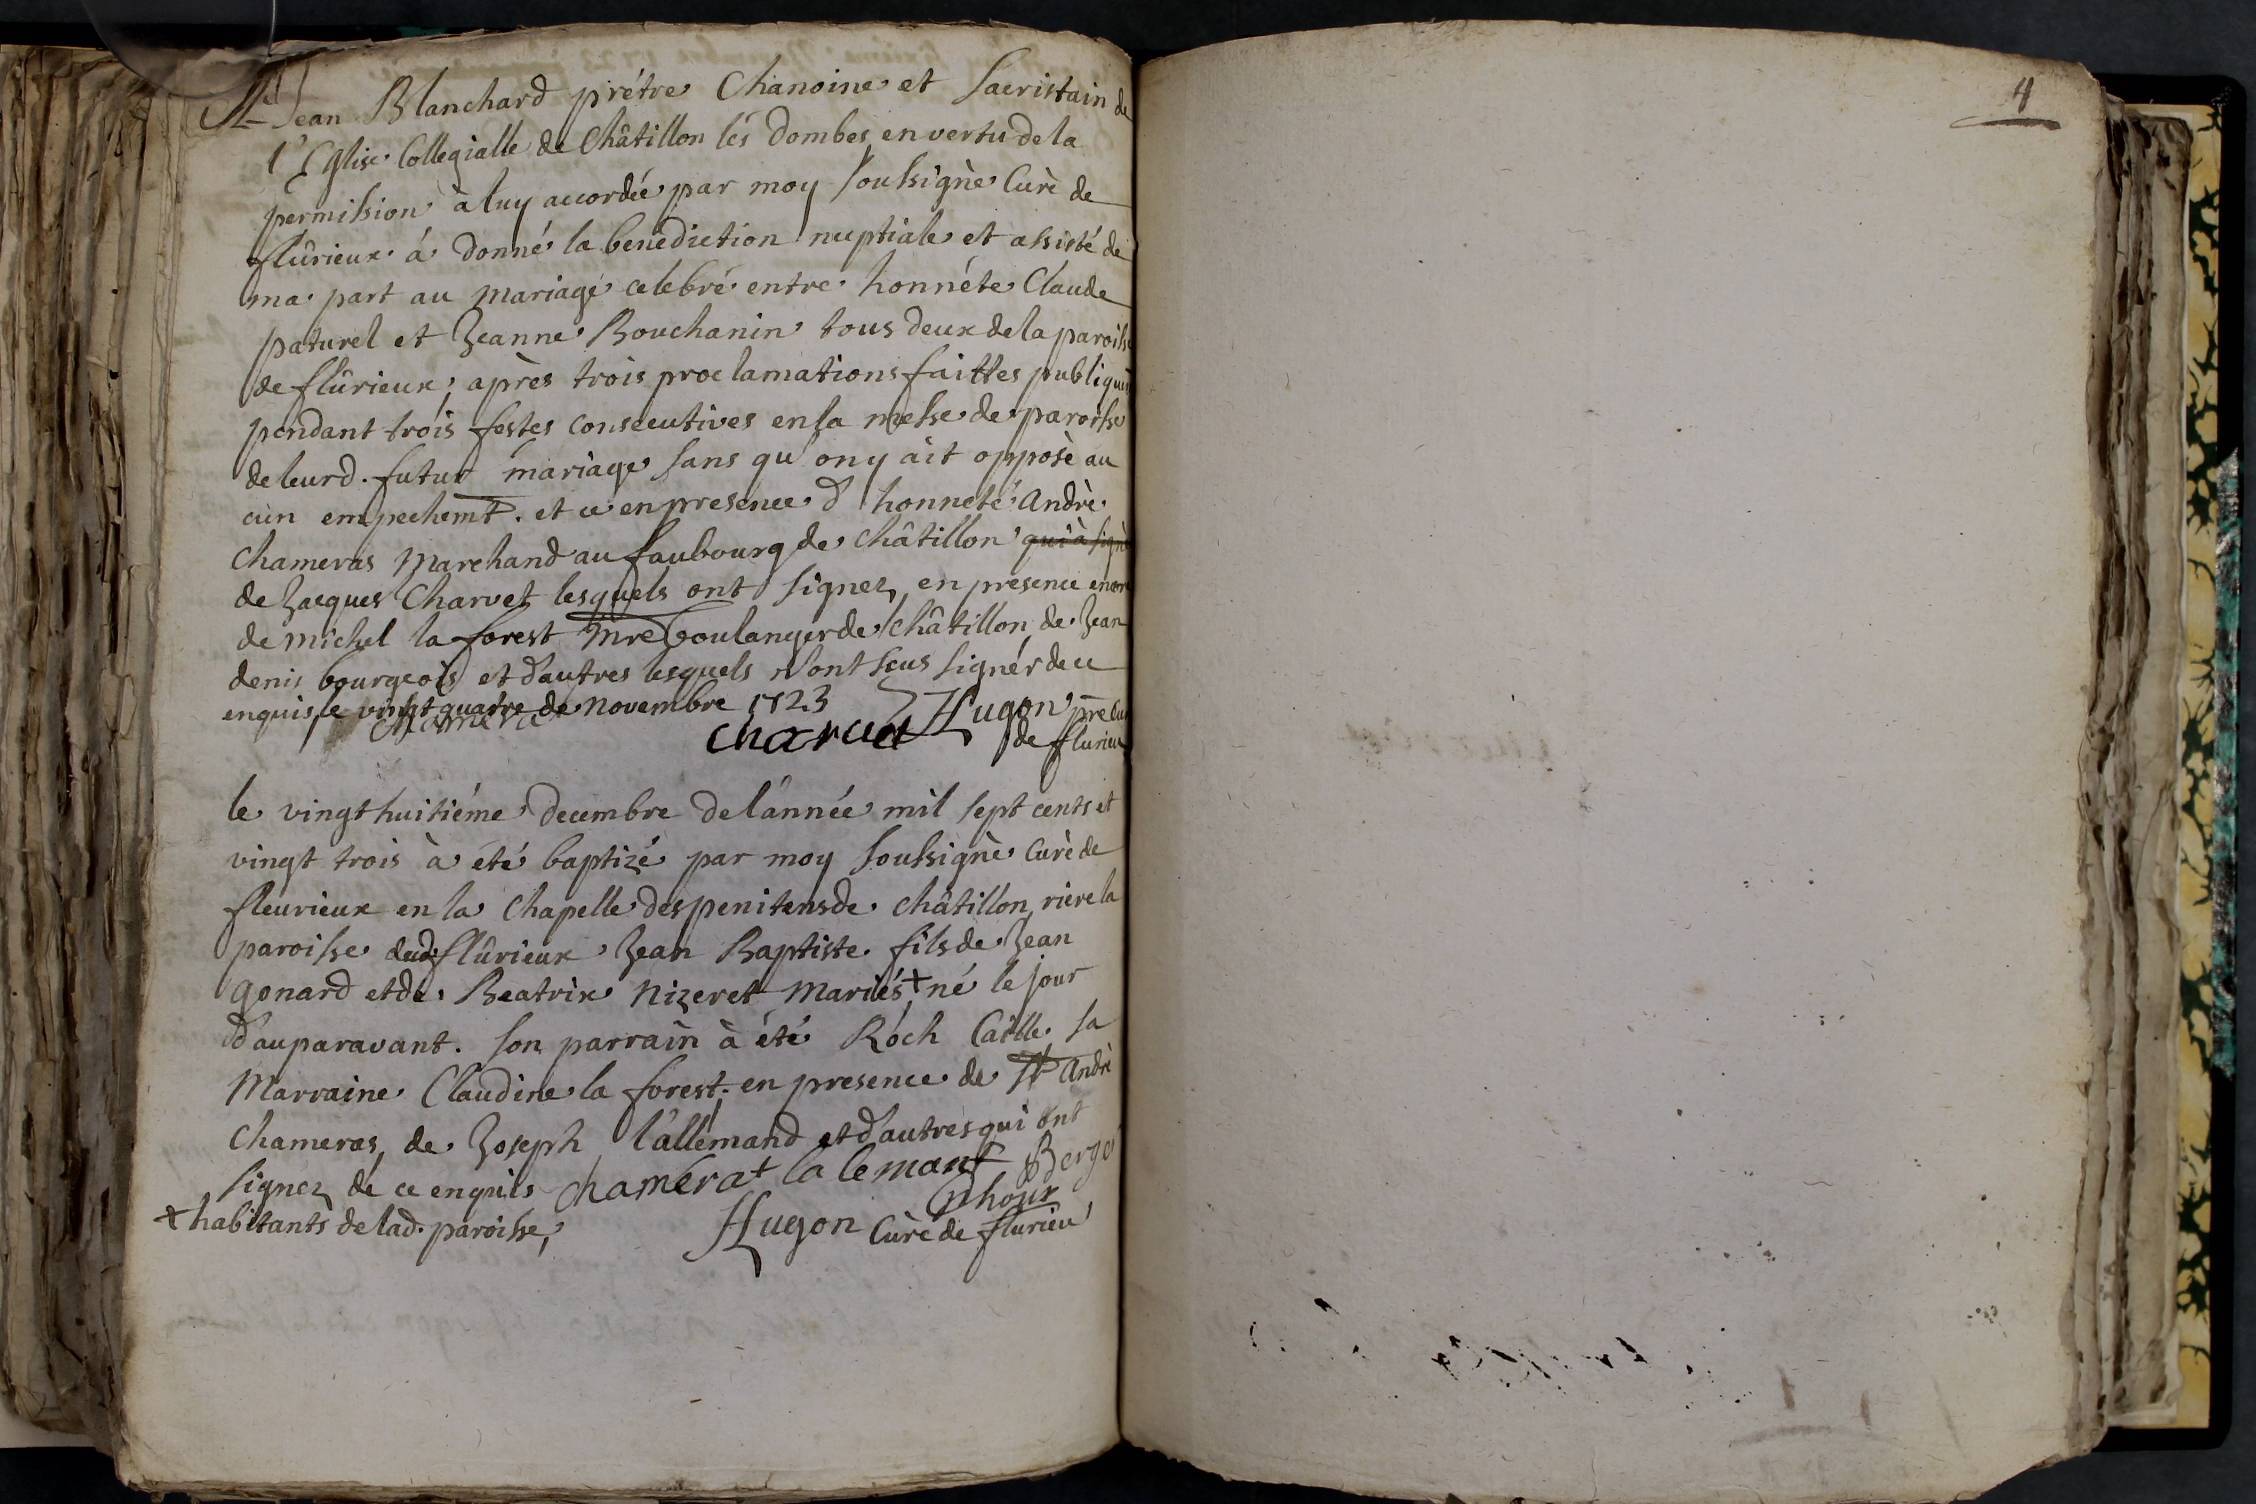 Mre Jean Blanchard prétre Chanoine et Sacristain de
l'Eglise Collegialle de Châtillon lés Dombes, en vertu de la
permission à luy accordée par moy soussignè Curè de
flûrieux á donné la benediction nuptiale et assisté de
ma part au mariage celebré entre honnéte Claude
paturel et Jeanne Bouchanin tous deux de la paroisse
de flûrieux; après trois proclamations faittes publiquemt
pendant trois festes consecutives en la messe de paroisse
de leurd. futur mariage sans qu'on y àit opposè au
cun empechemt. et ce en presence d'honneté Andrè
Chameras Marchand au faubourg de Châtillon qui à signè
de Jacques Charvet lesquels ont signez, en presence encore
de michel la forest Mre boulanger de Châtillon, de Jean
denis bourgeois et d'autres lesquels n'ont sçus signér de ce
enquis, le vingt quatre de novembre 1723
Charvet Hugon pre Cur
de flurieu
le vingt huitiéme decembre de l'année mil sept cents et
vingt trois à été baptizé par moy soussignè Curè de
fleurieux en la Chapelle des penitens de Châtillon, riere la
paroisse dud. flûrieux Jean Baptiste fils de Jean
Gonard et de Beatrix Nizeret Mariés + né le jour
d'auparavant. Son parrain à été Róch Caille, sa
Marraine Claudine la forest, en presence de Sr Andrè
Chameras, de Joseph l'allemand et d'autres qui ont
signez de ce enquis chamerat la lemant Berger
+ habitants de lad. paroisse,
Hugon Curè de flurieu
4